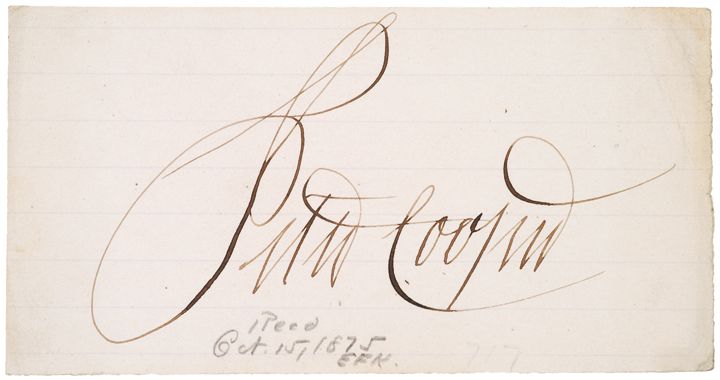 Peter Cooper
Recd
Oct. 15, 1875
EFK.
717